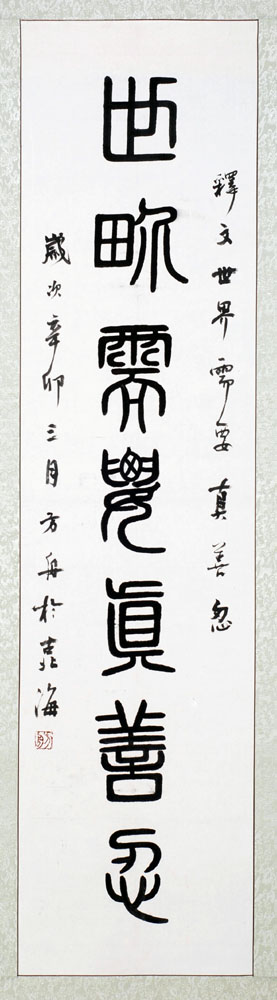 釋文世界需要真善忍
世界需要眞善忍
歲次辛卯三月方舟於海